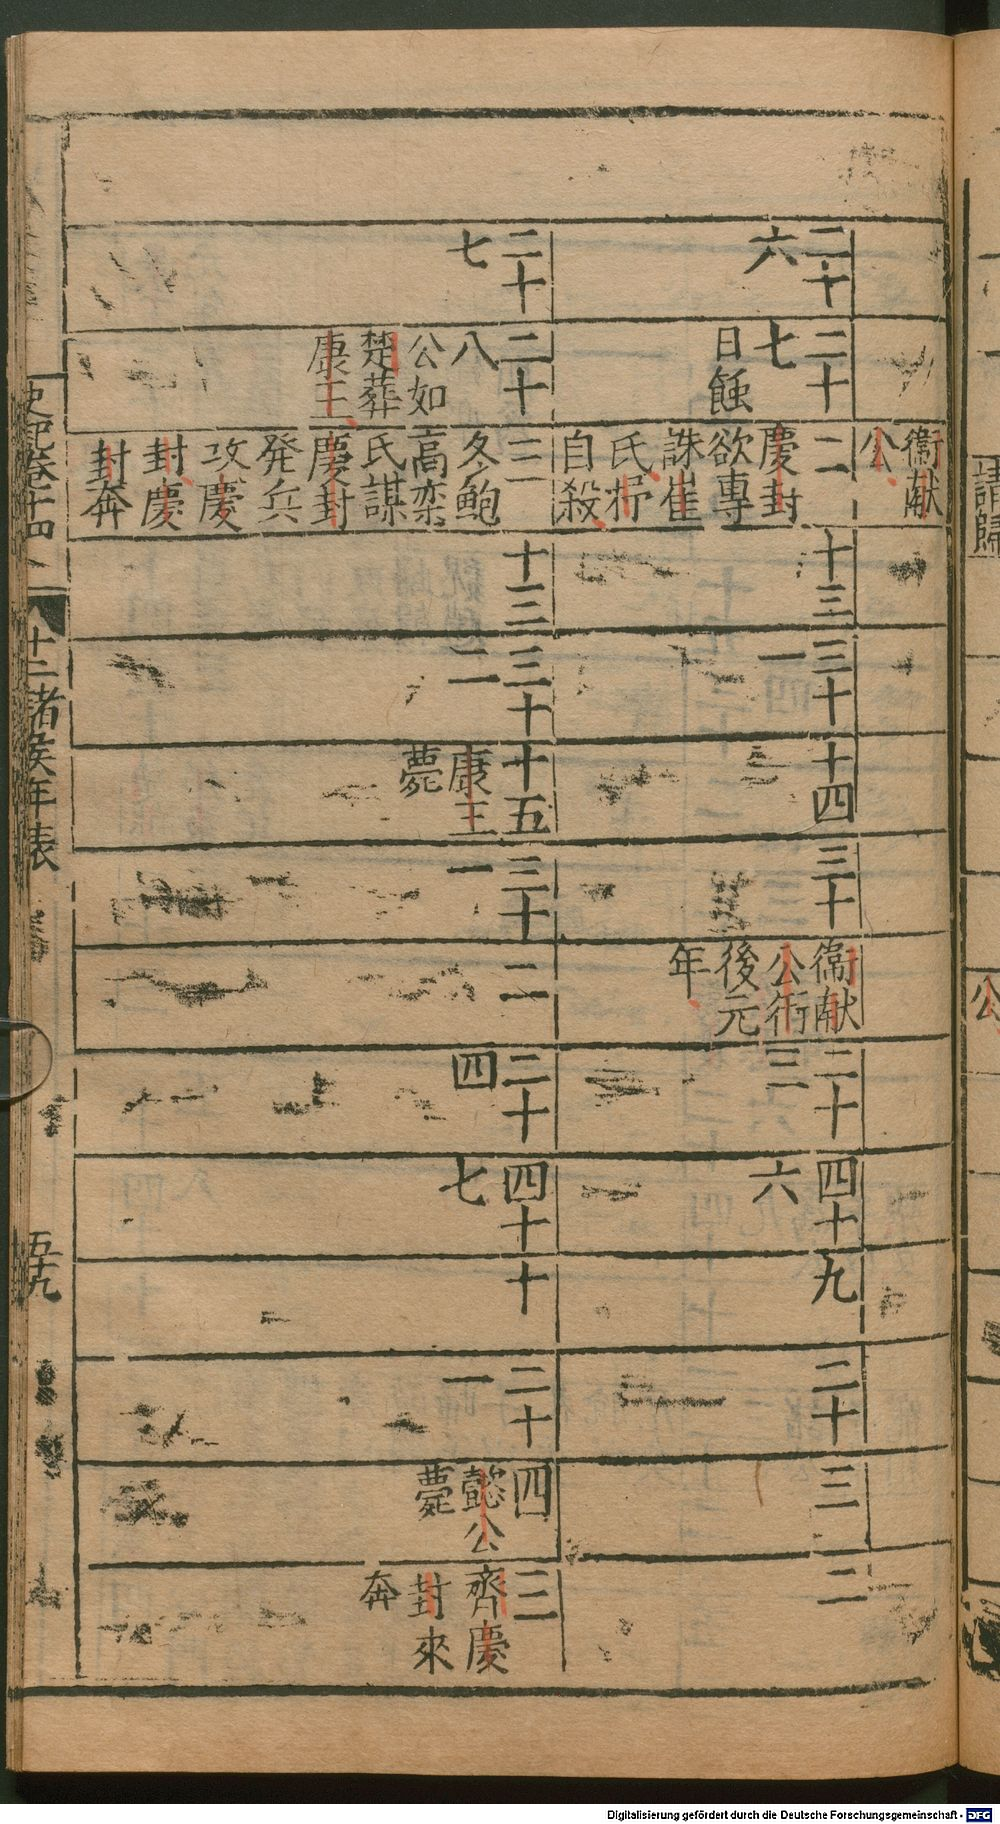 衞献
公
二十
六
二十
七
日蝕
二
慶封
欲專
誅崔
氏杼
自殺
十三
三十
一
十四
三十
衞献
公衎
後元
年
二十
三
四十
六
九
二十
三
二
二十
七
二十
八
公如
楚葬
康王
三
冬鮑
高栾
氏謀
慶封
発兵
攻慶
封慶
封奔
十三
三十
二
十五
康王
薨
三十
一
二
二十
四
四十
七
十
二十
一
四
懿公
薨
三
齊慶
封來
奔
史記卷十四
十二諸侯年表
五十九
請歸
公
Digitalisierung gefördert durch die Deutsche Forschungsgemeinschaft - DFG